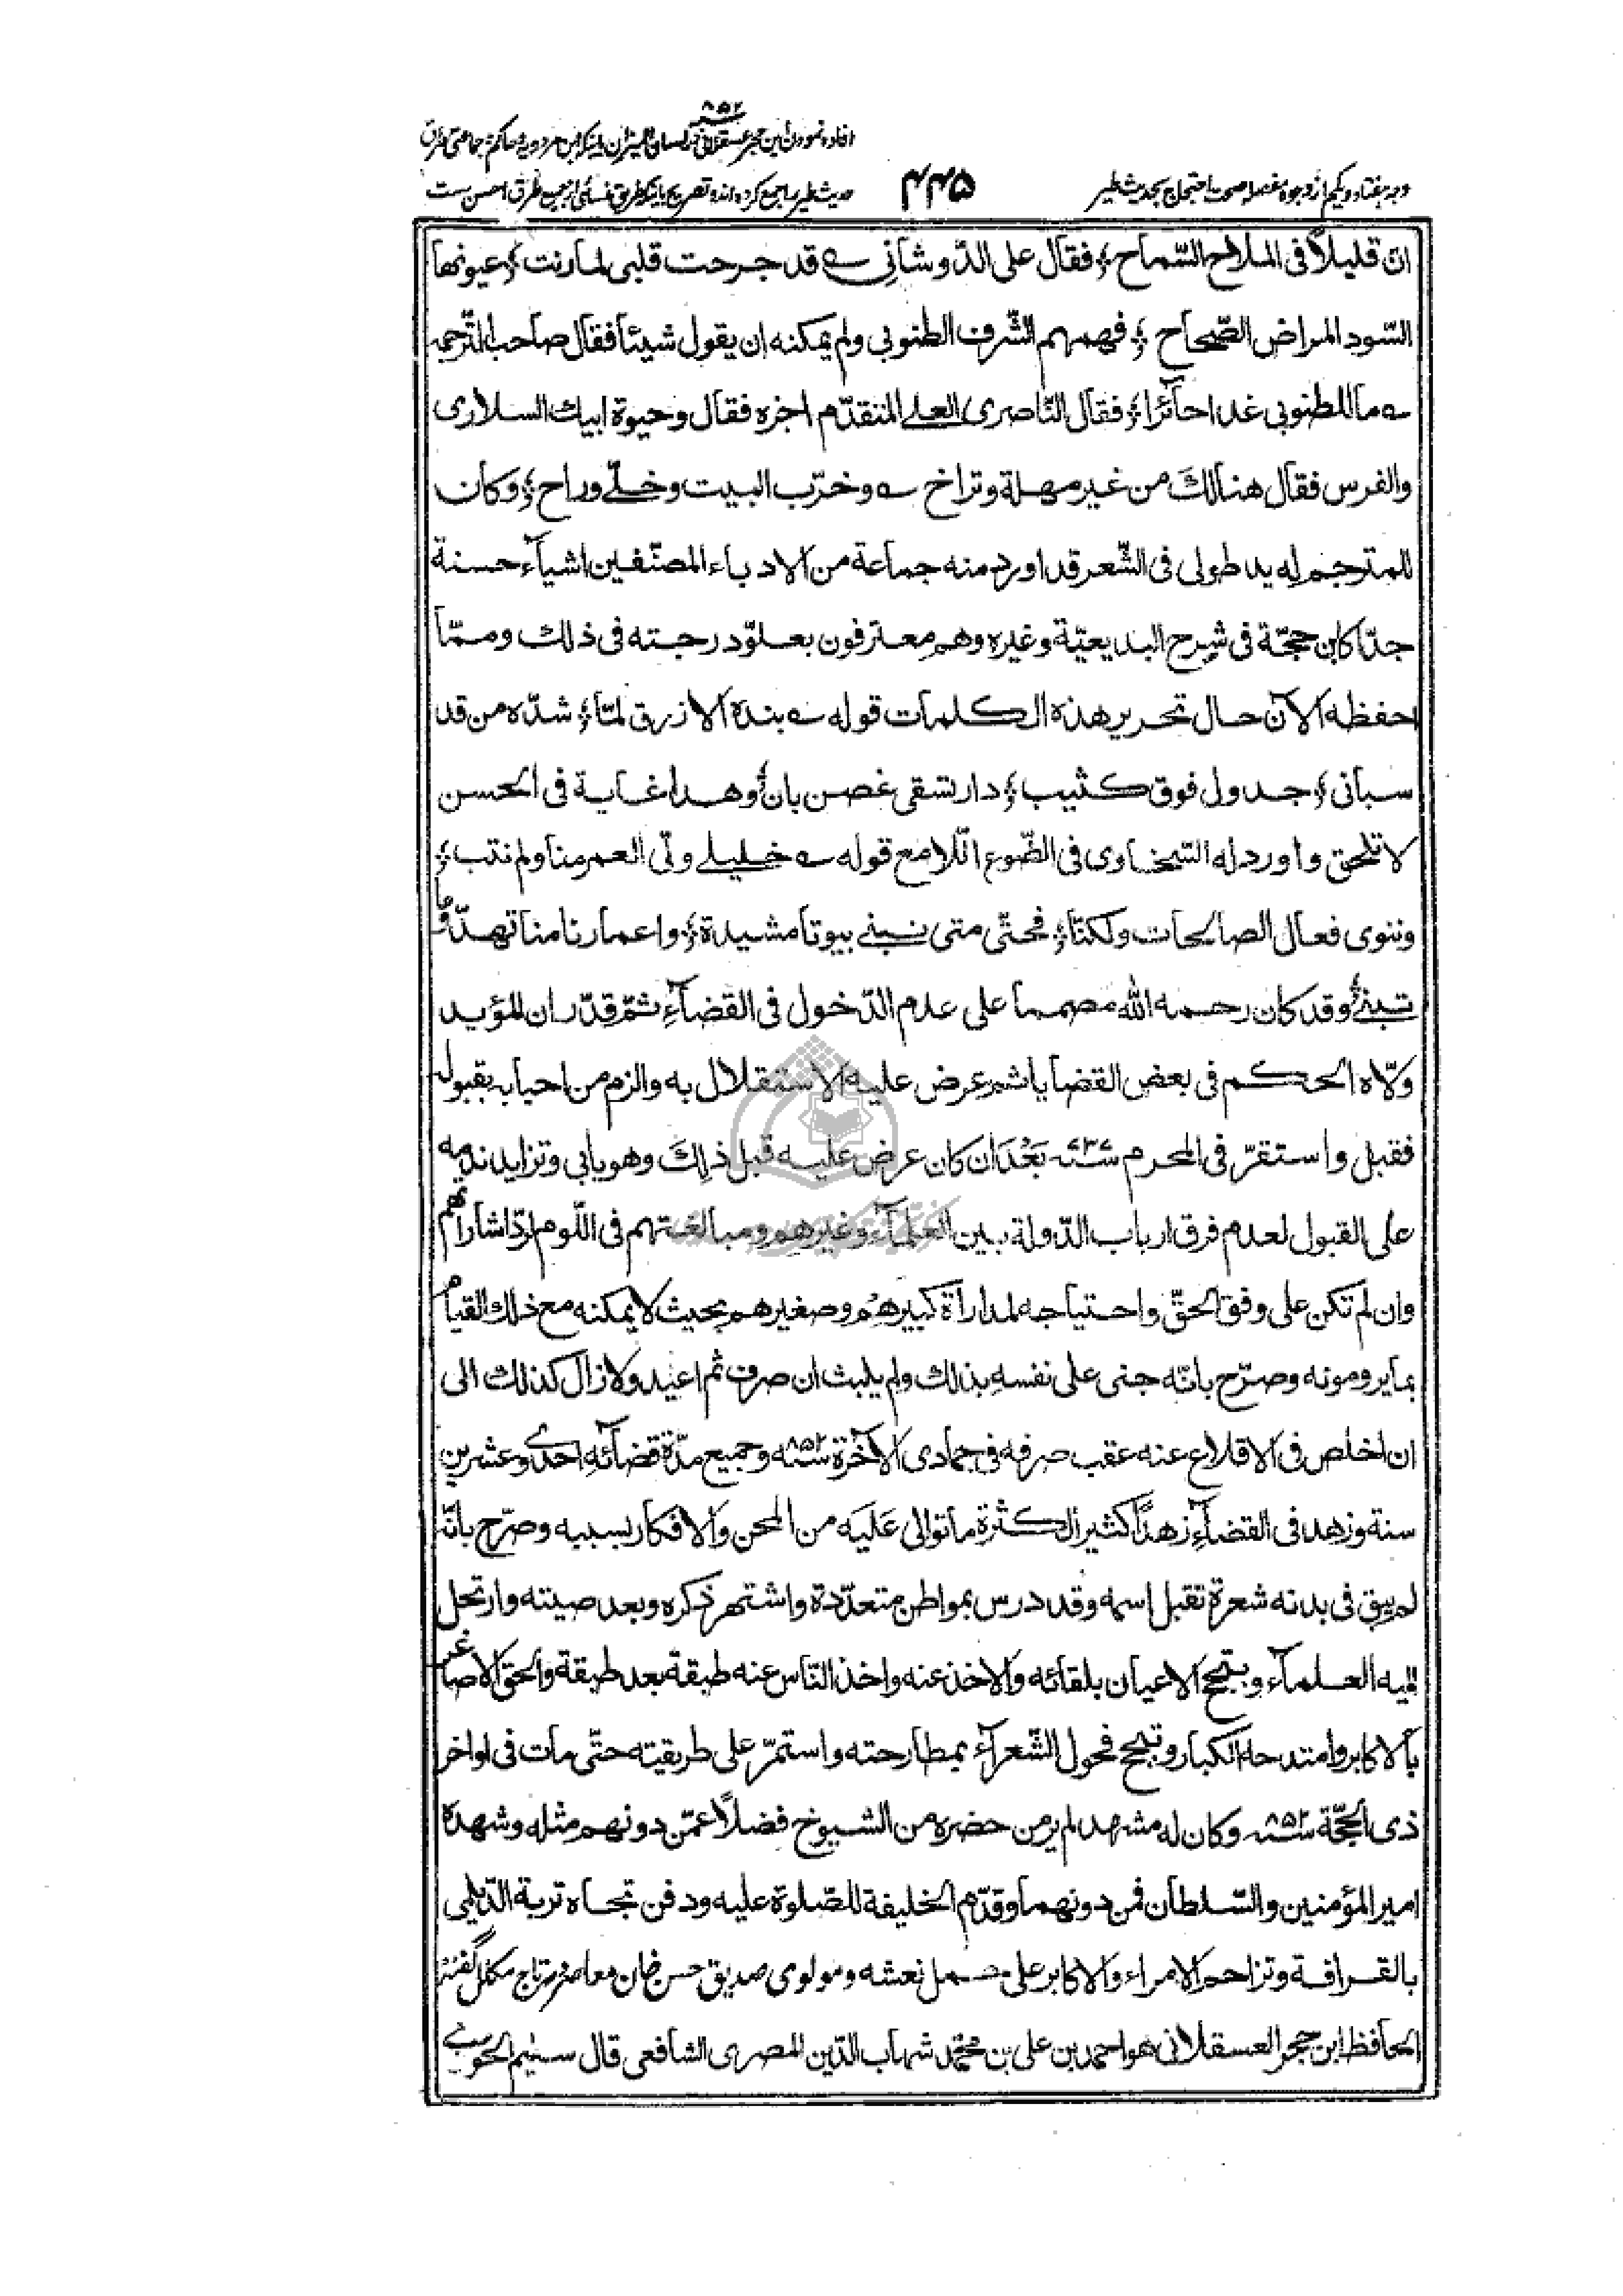 ۸۵۲
افاده نمودن ابن حجر عسقلانی در لسان المیزان باینکه ابن مردویه و حاکم و جماعتی طرق
وجه هفتاد و یکم از وجوه مفصله صحت احتجاج بحدیث طیر
۴۴۵
حدیث طیر را جمع کرده‌اند و تصریح باینکه طریق نسائی از جمیع طرق احسن ست
ان قليلاً فى الملاح السّماح فقال على الدّوشانى ے قد جرحت قلبى لما رنت عيونها
السّود المراض الصّحاح فهمهم الشّرف الطنوبى ولم يمكنه ان يقول شيئا فقال صاحب التّرجمه
ے ما للطنوبى غدا حائرا فقال النّاصرى العلے المتقدّم اجزه فقال وحيوة ابيك السلارى
والفرس فقال هنالك من غير مهلة وتراخ ے وخرّب البيت وخلّے وراح وكان
للمترجم له يد طولى فى الشّعر قد اورد منه جماعة من الادباء المصنّفين اشياء حسنة
جدّا كابن حجّة فى شرح البديعيّة وغيره وهم معترفون بعلوّ درجته فى ذلك وممّا
احفظه الآن حال تحرير هذه الكلمات قوله ے بنده الازرق لمّا شدّه من قد
سبانى جدول فوق كثيب دار تسقى غصن بان وهذا غاية فى الحسن
لا تلحق واورد له السّخاوى فى الضّوء اللامع قوله ے خليلے ولّى العمر منا ولم نتب
وننوى فعال الصالحات ولكنّا فحتّى متى نبنے بيوتا مشيدة واعمارنا منا تهدّ وما
تبنے وقد كان رحمه الله مصمما على عدم الدّخول فى القضاء ثمّ قدّر ان المؤيد
ولّاه الحكم فى بعض القضايا ثم عرض عليه الاستقلال به والزم من احبابه بقبوله
فقبل واستقرّ فى المحرم سنه ۸۲۷ بعد ان كان عرض عليه قبل ذلك وهو يابى وتزايد ندمه
على القبول لعدم فرق ارباب الدّولة بين العلماء وغيرهم ومبالغتهم فى اللّوم لردّ اشاراتهم
وان لم تكن على وفق الحقّ واحتياجه لمداراة كبيرهم وصغيرهم بحيث لا يمكنه مع ذلك القيام
بما يرومونه وصرّح بانّه جنى على نفسه بذلك ولم يلبث ان صرف ثم اعيد ولا زال كذلك الى
ان اخلص فى الاقلاع عنه عقب صرفه فى جمادى الآخرة سنه ۸۵۲ وجميع مدّة قضائه احدى وعشرين
سنة وزهد فى القضاء زهدًا كثيرا لكثرة ما توالى عليه من المحن والافكار بسببه وصرّح بانّه
لم يبق فى بدنه شعرة تقبل اسمه وقد درس بمواطن متعدّدة واشتهر ذكره وبعد صيته وارتحل
اليه العلماء وتبجح الاعيان بلقائه والاخذ عنه واخذ النّاس عنه طبقة بعد طبقة والحق الاصاغر
بالاكابر وامتدحه الكبار وتبجح فحول الشّعراء بمطارحته واستمرّ على طريقته حتّى مات فى اواخر
ذى الحجّة سنه ۸۵۲ وكان له مشهد لم ير من حضره من الشيوخ فضلًا عمّن دونهم مثله وشهده
امير المؤمنين والسّلطان فمن دونهما وقدّم الخليفة للصّلوة عليه ودفن تجاه تربة الدّيلمى
بالقرافة وتزاحم الامراء والاكابر على حمل نعشه ومولوى صديق حسن خان معاصر در تاج مكلل گفته
الحافظ ابن حجر العسقلانى هو احمد بن على بن محمّد شهاب الدّين المصرى الشافعى قال سليم الحوى